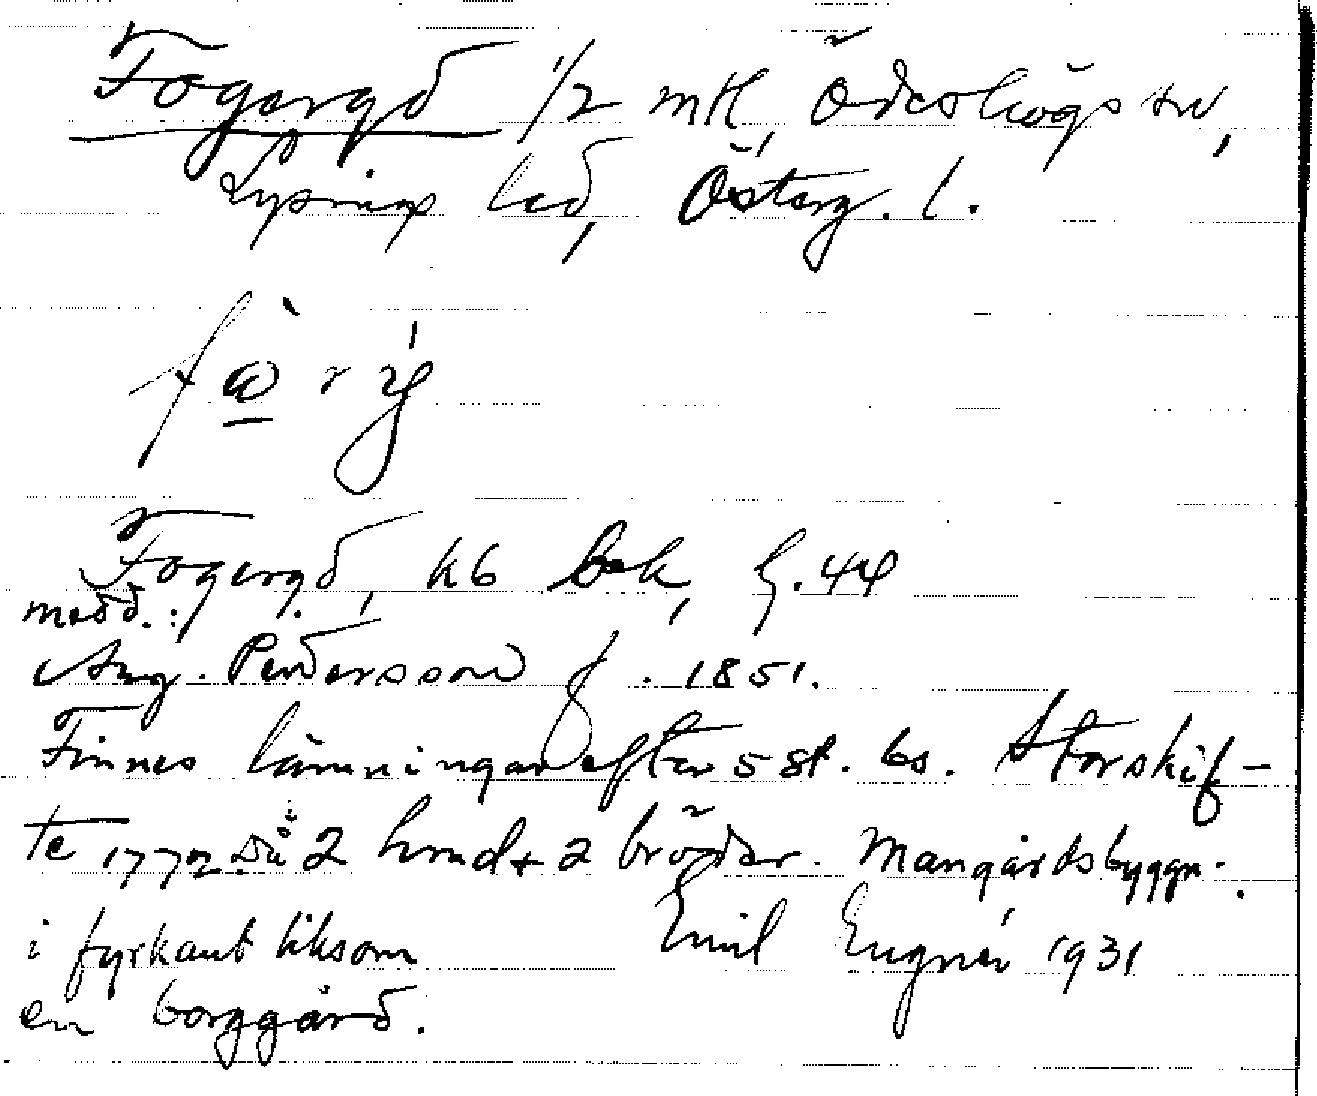 Fogeryd 1/2 mtl, Ödeshögs sn,
Lysings hd, Österg. l.
Fogeryd, k6 Bek, G. 44
medd.:
Aug. Pettersson f. 1851.
Finnes lämningar efter 5 st. bs. Storskif-
te 1772. Då 2 hmd + 2 bröder. Mangårdsbyggn.
i fyrkant liksom
en borggård.
Emil Engnér 1931